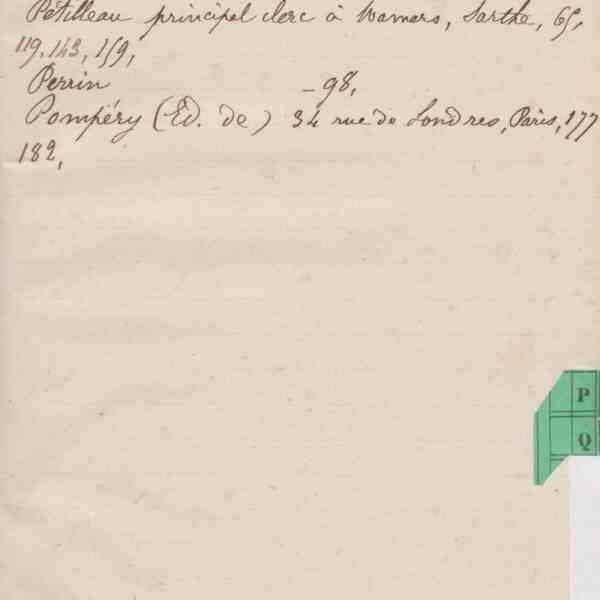 Petilleau principal clerc à Mamers, Sarthe, 65,
119, 143, 159,
Perrin – 98,
Pompéry (Ed. de) 34 rue de Londres, Paris, 177
182,
P
Q